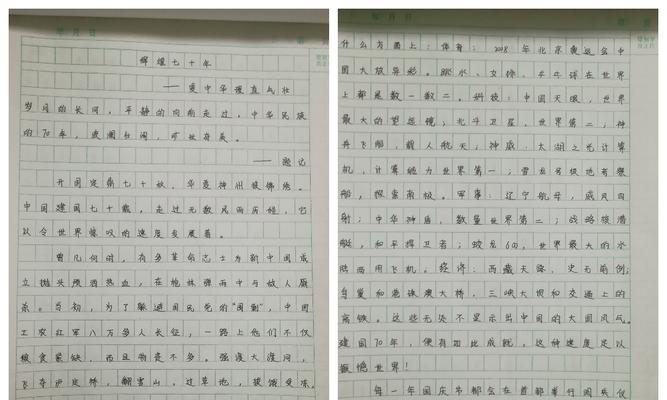 年 月 日
辉煌七十年
——爱中华理直气壮
岁月的长河，平静的向前走过，中华民族
的70年，波澜壮阔，可歌奇美。
——题记
开国定鼎七十故，华夏神州
中国建国七十载，走过无数风雨历程，它
以令世界惊叹的速度发展着。
曾几何时，有多革命志士为新中国成
立抛头颅洒热血，在枪林弹雨中与敌人厮
杀。当初，为了躲避国民党的"围剿"，中国
工农红军八万多人长征，一路上他们不仅
粮食紧缺，而且物资不多。强渡大渡河，
飞夺泸定桥，翻雪山，过草地，挨饿受冻。
年 月 日
什么为面上：体育：2018年北京奥运会中
国大放异彩。跳水、女排、乒乓球在世界
上都是数一数二。科技：中国天眼，世界
最大的望远镜；北斗卫星，世界第二；神
舟飞船，载人航天；神威·太湖之光计算
机，计算能力世界第一；雪龙号极地考察
船，探索南极。军事：辽宁航母，威风四
射；中华神盾，数量世界第二；战略核潜
艇，和平捍卫者；蛟龙600，世界最大的水
陆两用飞机。经济：西藏天路，史无前例；
鸟巢和港珠澳大桥，三峡大坝和交通上的
高铁。这些无处不显示出中国的大国风气。
建国70年，便有如此成就，这种速度足以
震惊世界！
每一年国庆节都会在首都举行阅兵仪